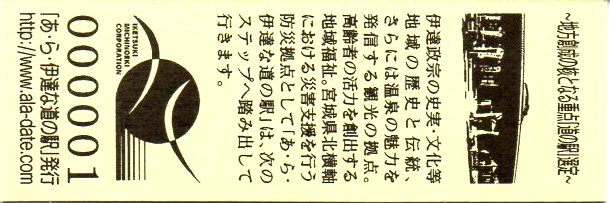 ～地方創成の核となる重点「道の駅」選定～
伊達政宗の史実・文化等
地域の歴史と伝統、
さらには温泉の魅力を
発信する観光の拠点。
高齢者の活力を創出する
地域福祉。宮城県北横軸
における災害支援を行う
防災拠点として「あ・ら・
伊達な道の駅」は、次の
ステップへ踏み出して
行きます。
IKETSUKI
MICHINOEKI
CORPORATION
000001
「あ・ら・伊達な道の駅」発行
http://www.ala-date.com